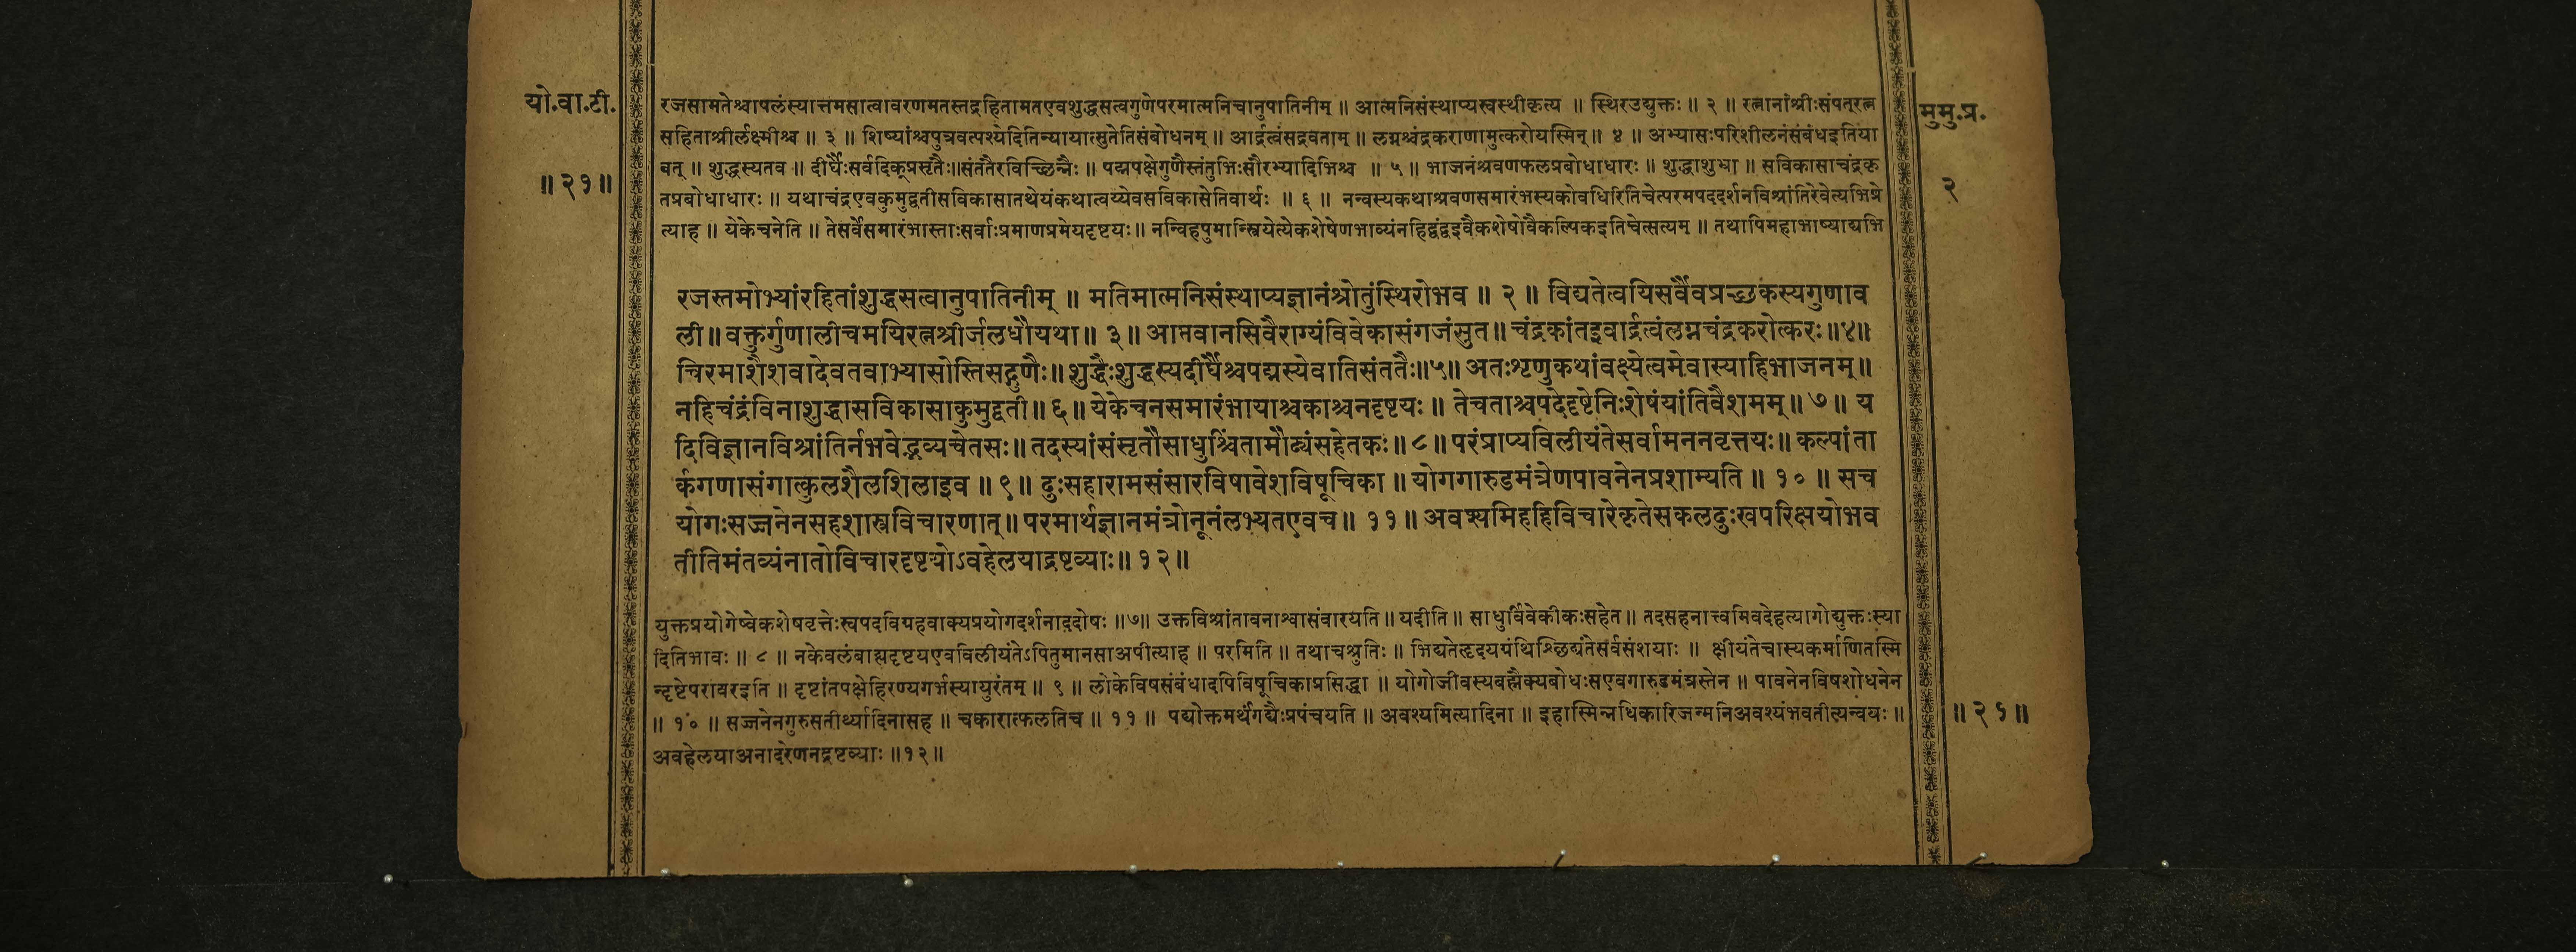 यो.वा.टी.
॥२१॥
रजसामतेश्चापलंस्यात्तमसात्वावरणमतस्तद्रहितामतएवशुद्धसत्वगुणेपरमात्मनिचानुपातिनीम् ॥ आत्मनिसंस्थाप्यस्वस्थीकृत्य ॥ स्थिरउद्युक्तः ॥ २ ॥ रत्नानांश्रीःसंपत्रत्न
सहिताश्रीर्लक्ष्मीश्च ॥ ३ ॥ शिष्यांश्चपुत्रवत्पश्येदितिन्यायात्सुतेतिसंबोधनम् ॥ आर्द्रत्वंसद्रवताम् ॥ लग्नश्चंद्रकराणामुत्करोयस्मिन् ॥ ४ ॥ अभ्यासःपरिशीलनंसंबंधइतिया
बत् ॥ शुद्धस्यतव ॥ दीर्घैःसर्वदिक्प्रसृतैः॥संततैरविच्छिन्नैः ॥ पद्मपक्षेगुणैस्तंतुभिःसौरभ्यादिभिश्च ॥ ५ ॥ भाजनंश्रवणफलप्रबोधाधारः ॥ शुद्धाशुभ्रा ॥ सविकासाचंद्रकृ
तप्रबोधाधारः ॥ यथाचंद्रएवकुमुद्वतीसविकासातथेयंकथात्वय्येवसविकासेतिवार्थः ॥ ६ ॥ नन्वस्यकथाश्रवणसमारंभस्यकोवधिरितिचेत्परमपददर्शनविश्रांतिरेवेत्यभिप्रे
त्याह ॥ येकेचनेति ॥ तेसर्वेसमारंभास्ताःसर्वाःप्रमाणप्रमेयदृष्टयः ॥ नन्विहपुमान्स्त्रियेत्येकशेषेणभाव्यंनहिद्वंद्वइवैकशेषोवैकल्पिकइतिचेत्सत्यम् ॥ तथापिमहाभाष्याद्यभि
रजस्तमोभ्यांरहितांशुद्धसत्वानुपातिनीम् ॥ मतिमात्मनिसंस्थाप्यज्ञानंश्रोतुंस्थिरोभव ॥ २ ॥ विद्यतेत्वयिसर्वैवप्रच्छकस्यगुणाव
ली ॥ वक्तुर्गुणालीचमयिरत्नश्रीर्जलधौयथा ॥ ३ ॥ आप्तवानसिवैराग्यंविवेकासंगजंसुत ॥ चंद्रकांतइवार्द्रत्वंलग्नचंद्रकरोत्करः ॥४॥
चिरमाशैशवादेवतवाभ्यासोस्तिसद्गुणैः ॥ शुद्धैःशुद्धस्यदीर्घैश्चपद्मस्येवातिसंततैः ॥५॥ अतःशृणुकथांवक्ष्येत्वमेवास्याहिभाजनम् ॥
नहिचंद्रंविनाशुद्धासविकासाकुमुद्वती ॥ ६ ॥ येकेचनसमारंभायाश्चकाश्चनदृष्टयः ॥ तेचताश्चपदेदृष्टेनिःशेषंयांतिवैशमम् ॥ ७ ॥ य
दिविज्ञानविश्रांतिर्नभवेद्भव्यचेतसः ॥ तदस्यांसंसृतौसाधुश्चिंतामौढ्यंसहेतकः ॥ ८ ॥ परंप्राप्यविलीयंतेसर्वामननवृत्तयः ॥ कल्पांता
र्कगणासंगात्कुलशैलशिलाइव ॥ ९ ॥ दुःसहारामसंसारविषावेशविषूचिका ॥ योगगारुडमंत्रेणपावनेनप्रशाम्यति ॥ १० ॥ सच
योगःसज्जनेनसहशास्त्रविचारणात् ॥ परमार्थज्ञानमंत्रोनूनंलभ्यतएवच ॥ ११ ॥ अवश्यमिहहिविचारेकृतेसकलदुःखपरिक्षयोभव
तीतिमंतव्यंनातोविचारदृष्टयोऽवहेलयाद्रष्टव्याः ॥ १२ ॥
युक्तप्रयोगेष्वेकशेषवृत्तेःस्वपदविग्रहवाक्यप्रयोगदर्शनाददोषः ॥७॥ उक्तविश्रांतावनाश्वासंवारयति ॥ यदीति ॥ साधुर्विवेकीकःसहेत ॥ तदसहनात्त्वमिवदेहत्यागोद्युक्तःस्या
दितिभावः ॥ ८ ॥ नकेवलंबाह्यदृष्टयएवविलीयंतेऽपितुमानसाअपीत्याह ॥ परमिति ॥ तथाचश्रुतिः ॥ भिद्यतेहृदयग्रंथिश्छिद्यंतेसर्वसंशयाः ॥ क्षीयंतेचास्यकर्माणितस्मि
न्दृष्टेपरावरइति ॥ दृष्टांतपक्षेहिरण्यगर्भस्यायुरंतम् ॥ ९ ॥ लोकेविषसंबंधादपिविषूचिकाप्रसिद्धा ॥ योगोजीवस्यब्रह्मैक्यबोधःसएवगारुडमंत्रस्तेन ॥ पावनेनविषशोधनेन
॥ १० ॥ सज्जनेनगुरुसतीर्थ्यादिनासह ॥ चकारात्फलतिच ॥ ११ ॥ पद्योक्तमर्थंगद्यैःप्रपंचयति ॥ अवश्यमित्यादिना ॥ इहास्मिन्नधिकारिजन्मनिअवश्यंभवतीत्यन्वयः ॥
अवहेलयाअनादरेणनद्रष्टव्याः ॥१२॥
मुमु.प्र.
२
॥२१॥